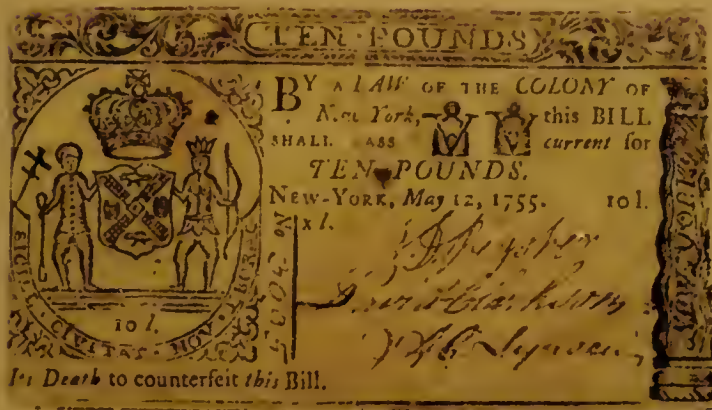 TEN POUNDS
BY A LAW OF THE COLONY OF
New York, this BILL
SHALL PASS current for
TEN POUNDS.
NEW-YORK, May 12, 1755. 10 l.
No x l.
David Clarkson
10 l.
CIVITAS NOV
NEW YORK
'Tis Death to counterfeit this Bill.